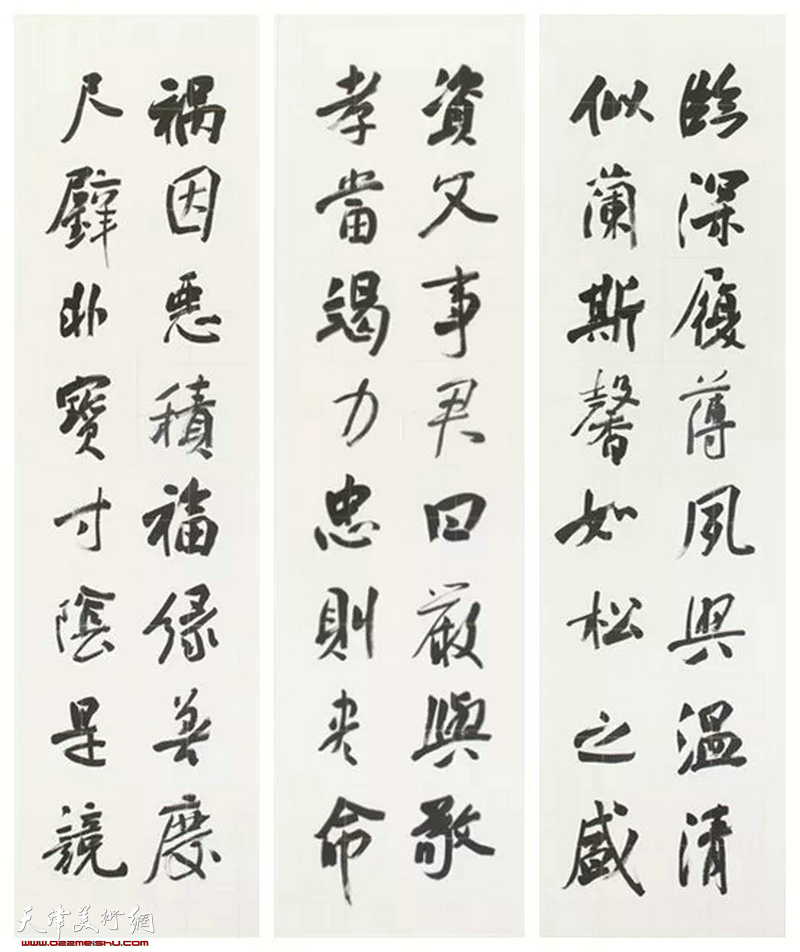 禍因悪積福緣善慶
尺璧非寶寸陰是競
資父事君曰嚴與敬
孝當竭力忠則尽命
臨深履薄夙興温清
似蘭斯馨如松之盛
天津美術網
www.022meishu.com